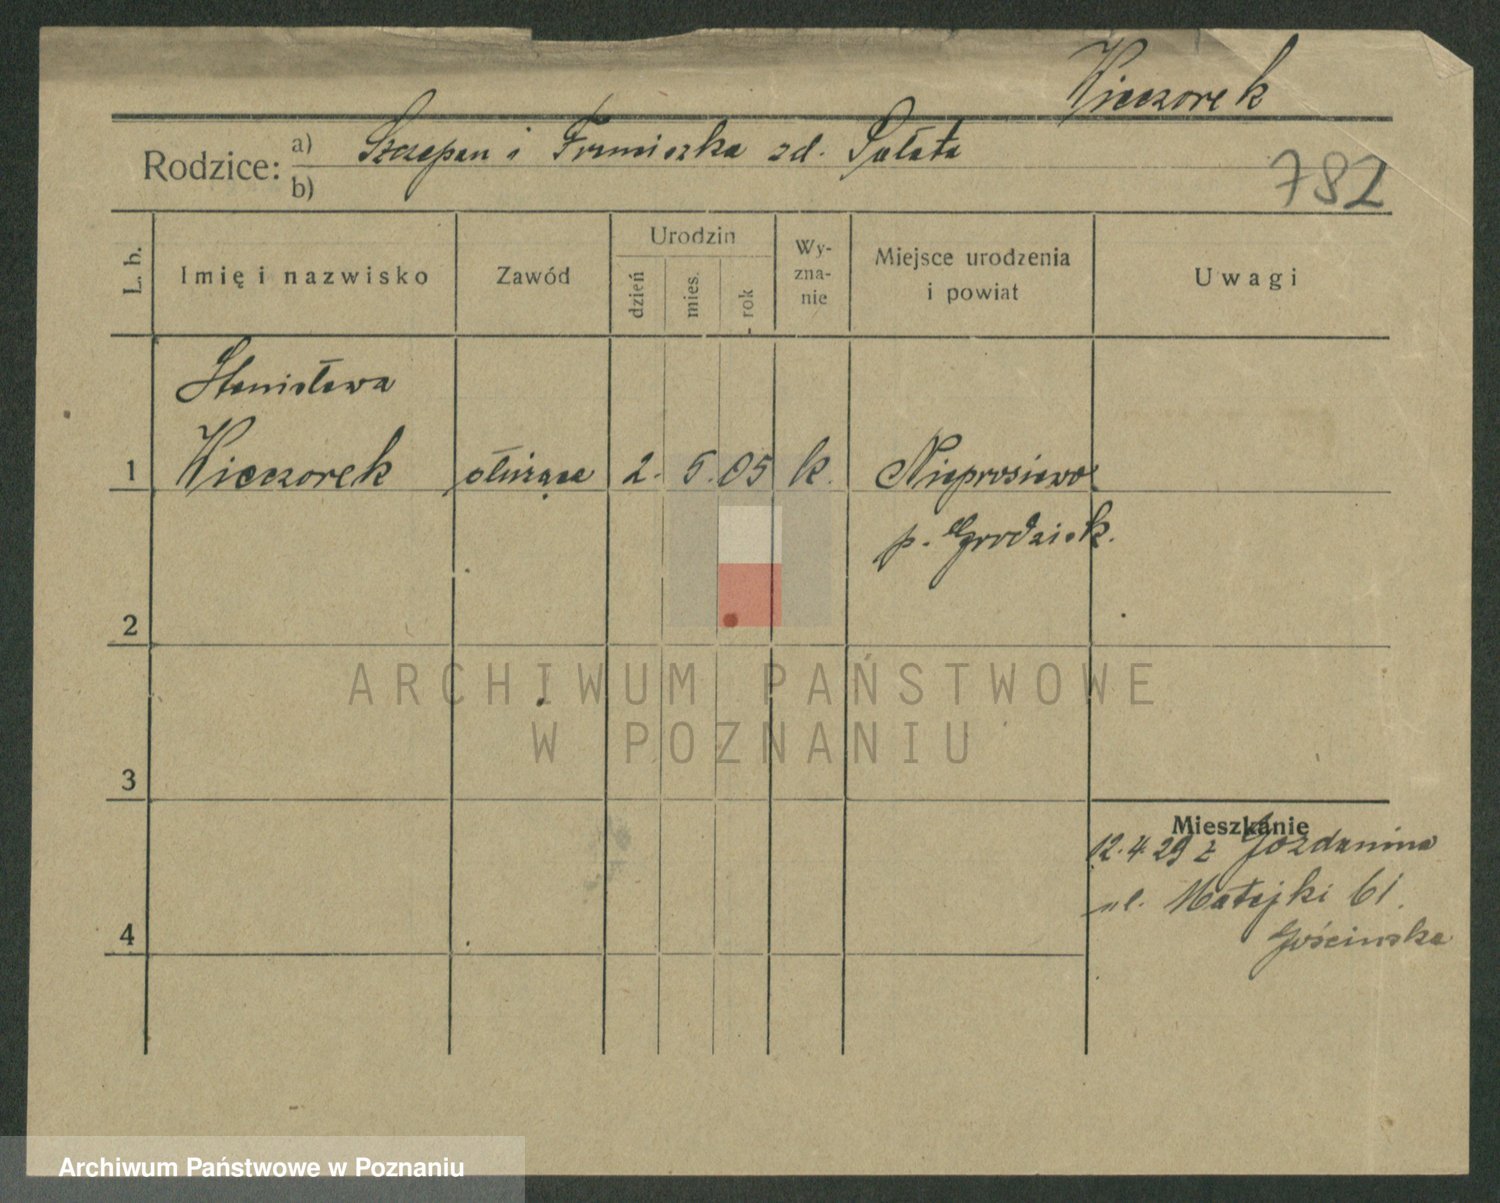 Wieczorek
Rodzice: a) Szczepan i Franciszka zd. Sałata
b)
782
L. b.
Imię i nazwisko
Zawód
Urodzin
dzień
mies.
rok
Wy-
zna-
nie
Miejsce urodzenia
i powiat
Uwagi
Stanisława
1 Wieczorek służąca 2. 5. 05 k. Nieprosiewo
p. Grodzisk.
2
3
4
ARCHIWUM PAŃSTWOWE
W POZNANIU
Mieszkanie
12.4.29 z Jozdanina
ul. Matejki 61.
Gościnska
Archiwum Państwowe w Poznaniu